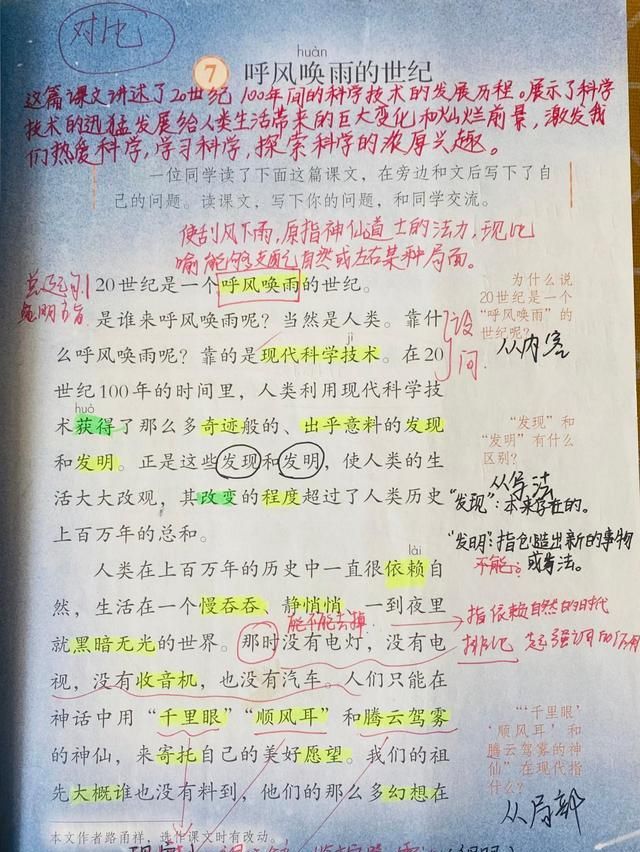 对比
7 呼风唤雨的世纪
huàn
这篇课文讲述了20世纪100年间的科学技术的发展历程。展示了科学
技术的迅猛发展给人类生活带来的巨大变化和灿烂前景，激发我
们热爱科学，学习科学，探索科学的浓厚兴趣。
一位同学读了下面这篇课文，在旁边和文后写下了自
己的问题。读课文，写下你的问题，和同学交流。
使刮风下雨，原指神仙道士的法力，现比
喻能够支配自然或左右某种局面。
20世纪是一个呼风唤雨的世纪。
是谁来呼风唤雨呢？当然是人类。靠什
jì
么呼风唤雨呢？靠的是现代科学技术。在20
世纪100年的时间里，人类利用现代科学技
huò
术获得了那么多奇迹般的、出乎意料的发现
和发明。正是这些发现和发明，使人类的生
活大大改观，其改变的程度超过了人类历史
上百万年的总和。
lài
人类在上百万年的历史中一直很依赖自
然，生活在一个慢吞吞、静悄悄、一到夜里
能不能去掉
就黑暗无光的世界。那时没有电灯，没有电
视，没有收音机，也没有汽车。人们只能在
神话中用“千里眼”“顺风耳”和腾云驾雾
的神仙，来寄托自己的美好愿望。我们的祖
先大概谁也没有料到，他们的那么多幻想在
本文作者路甬祥，选作课文时有改动。
为什么说
20世纪是一个
“呼风唤雨”的
世纪呢？
设
问
从内容
“发现”和
“发明”有什么
区别？
从写法
“发现”：本来存在的。
“发明”：指创造出新的事物
不能。 或方法。
指依赖自然的时代
排比
“‘千里眼’
‘顺风耳’和
腾云驾雾的神
仙”在现代指
什么？
从局部